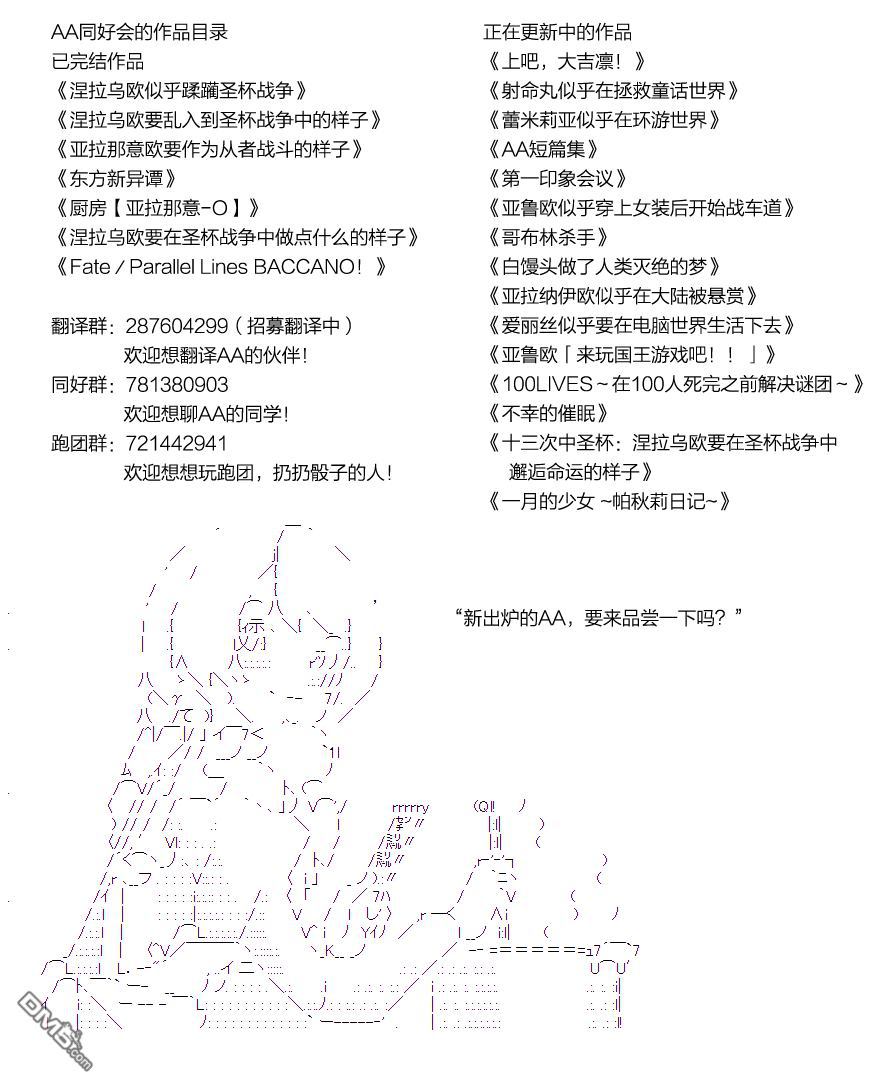 AA同好会的作品目录
已完结作品
《涅拉乌欧似乎蹂躏圣杯战争》
《涅拉乌欧要乱入到圣杯战争中的样子》
《亚拉那意欧要作为从者战斗的样子》
《东方新异谭》
《厨房【亚拉那意-O】》
《涅拉乌欧要在圣杯战争中做点什么的样子》
《Fate／Parallel Lines BACCANO！》
翻译群：287604299（招募翻译中）
欢迎想翻译AA的伙伴！
同好群：781380903
欢迎想聊AA的同学！
跑团群：721442941
欢迎想想玩跑团，扔扔骰子的人！
正在更新中的作品
《上吧，大吉凛！》
《射命丸似乎在拯救童话世界》
《蕾米莉亚似乎在环游世界》
《AA短篇集》
《第一印象会议》
《亚鲁欧似乎穿上女装后开始战车道》
《哥布林杀手》
《白馒头做了人类灭绝的梦》
《亚拉纳伊欧似乎在大陆被悬赏》
《爱丽丝似乎要在电脑世界生活下去》
《亚鲁欧「来玩国王游戏吧！！」》
《100LIVES～在100人死完之前解决谜团～》
《不幸的催眠》
《十三次中圣杯：涅拉乌欧要在圣杯战争中
邂逅命运的样子》
《一月的少女 ~帕秋莉日记~》
“新出炉的AA，要来品尝一下吗？”
DM5.com